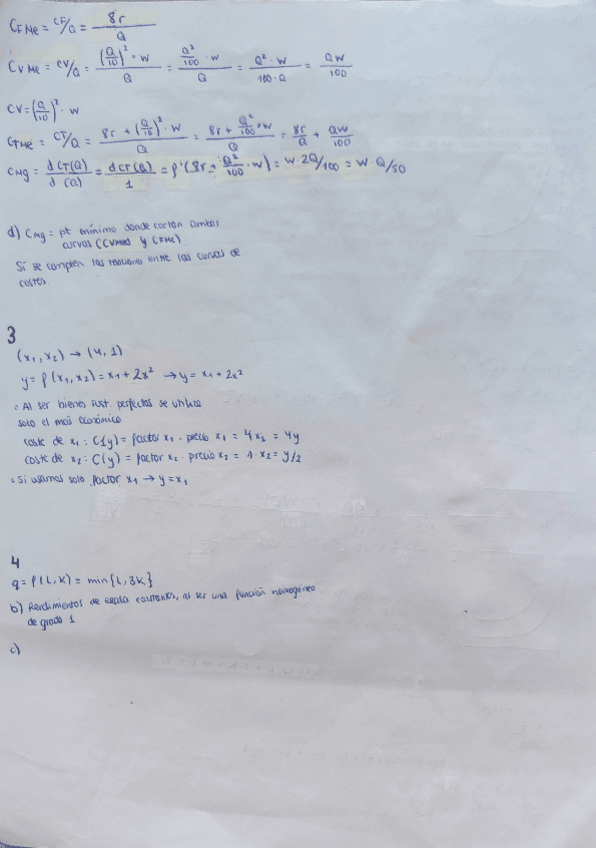 CFMe = CF/Q = 8r/Q
CVMe = CV/Q = (Q/10)² · w / Q = Q²/100 · w / Q = Q² · w / 100 · Q = Qw/100
CV = (Q/10)² · w
CTMe = CT/Q = 8r + (Q/10)² · w / Q = 8r + Q²/100 · w / Q = 8r/Q + Qw/100
CMg = dCT(Q)/d(Q) = dCT(Q)/1 = f'(8r + Q²/100 · w) = w · 2Q/100 = w Q/50
d) CMg = pt mínimo donde cortan ambas
curvas (CVMe y CTMe)
Sí se cumplen las entre las curvas de
costes.
3
(x₁, x₂) → (4, 1)
y = f(x₁, x₂) = x₁ + 2x² → y = x₁ + 2x²
· Al ser bienes sust. perfectos se utiliza
solo el más económico
coste de x₁ : C(y) = factor x₁ · precio x₁ = 4x₁ = 4y
coste de x₂ : C(y) = factor x₂ · precio x₂ = 1 · x₂ = y/2
· Si usamos solo factor x₁ → y = x₁
4
q = f(L, K) = min{L, 3K}
b) Rendimientos de escala constantes, al ser una función homogénea
de grado 1
c)